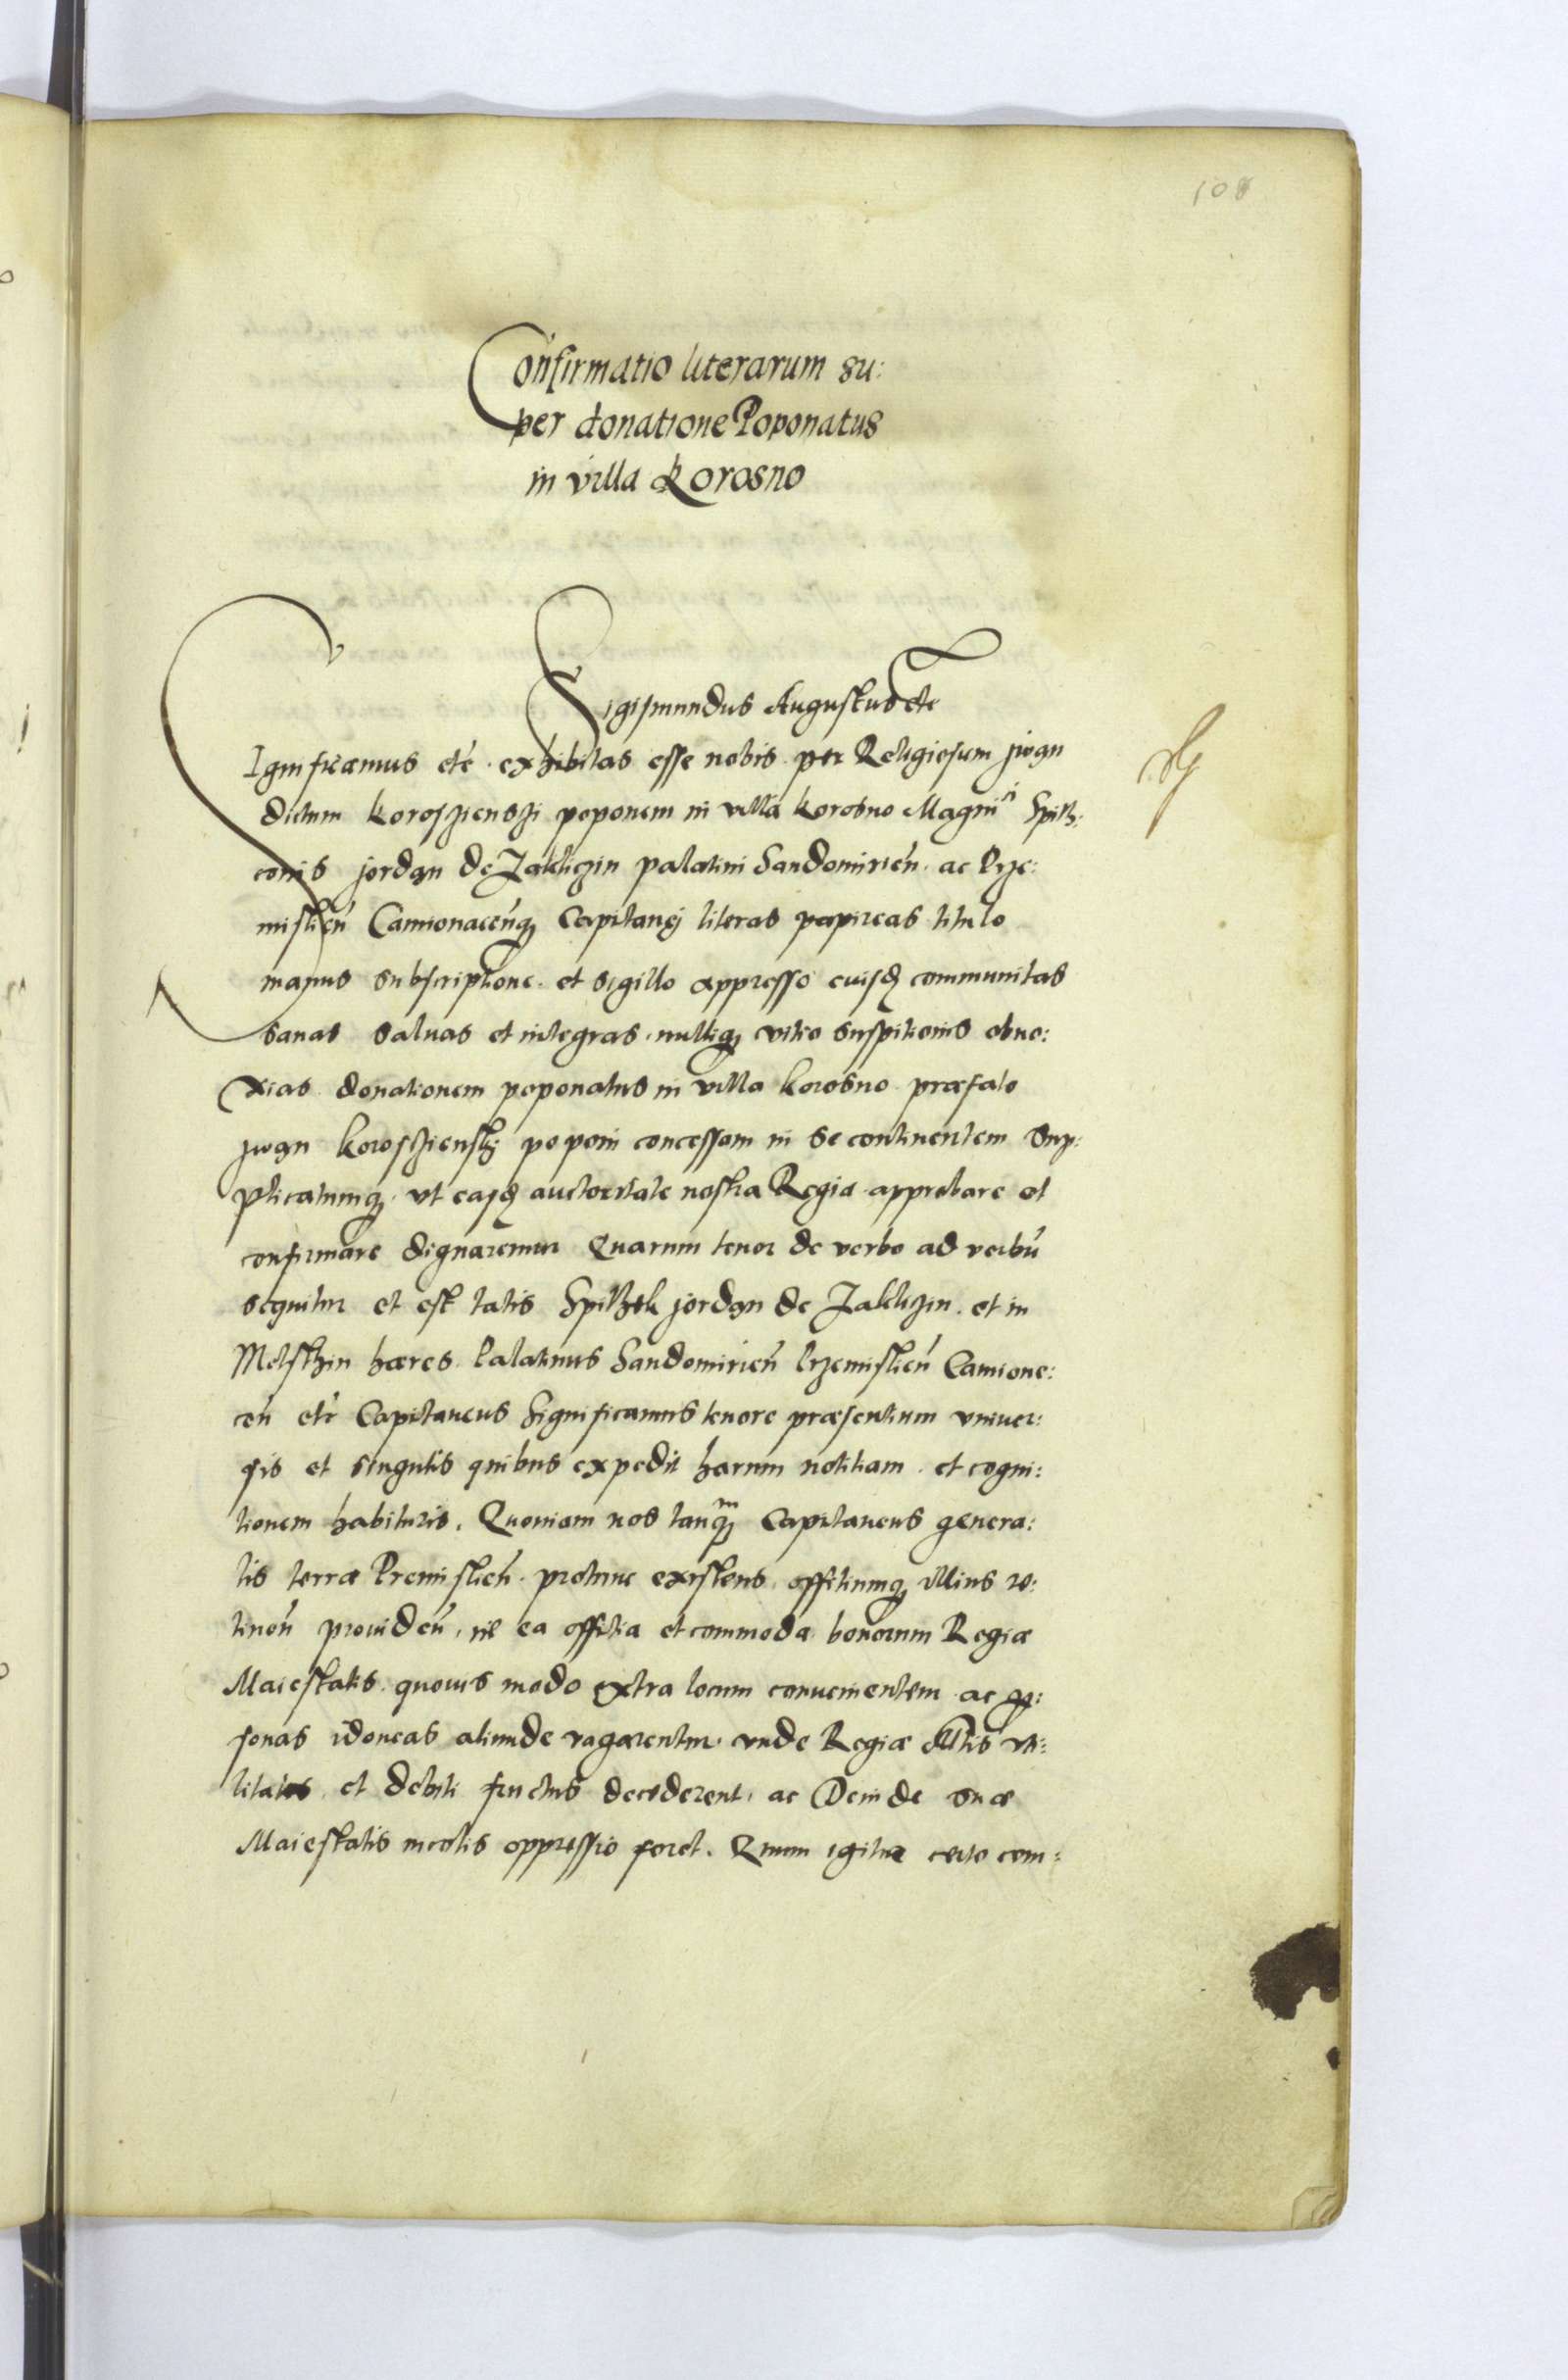 108
Confirmatio literarum su:
per donatione Poponatus
in villa Korosno
Sigismundus Augustus etc
Significamus etc. exhibitas esse nobis per Religiosum jwan
dictum Koroszienszi poponem in villa Korosno Magnici Spith:
conis jordan de Zakliczin palatini Sandomirien̄. ac Prze:
mislien̄ Camionacen̄q; Capitanej literas papireas titulo
manus subscriptione. et sigillo appresso euisd communitas
sanas saluas et integras. nulliq; vitio suspitionis obno:
xias donationem poponatus in villa Korosno præfato
jwan Korosziensky poponi concessam in se continentem Sup:
plicatumq;. vt easd auctoritate nostra Regia approbare et
confirmare dignaremur Quarum tenor de verbo ad verbū
sequitur et est talis Spithek jordan de Zakliczin. et in
Melsthin hæres Palatinus Sandomirien̄ Przemislien̄ Camione:
cen̄ etc Capitaneus Significamus tenore præsentium vniuer:
sis et singulis quibus expedit harum notitiam. et cogni:
tionem habituris. Quoniam nos tanq̄m Capitaneus genera:
lis terræ Premislien̄. protunc existens, offitiumq; illius re:
tinen̄ prouiden̄, ne ea offitia et commoda bonorum Regiæ
Maiestatis. quouis modo extra locum conuenientem ac p:
sonas idoneas aliunde vagarentur. vnde Regiæ Mtis vti:
litates et debiti fructus decederent, ac Deinde suæ
Maiestatis incolis oppressio foret. Quum igitur certo com: